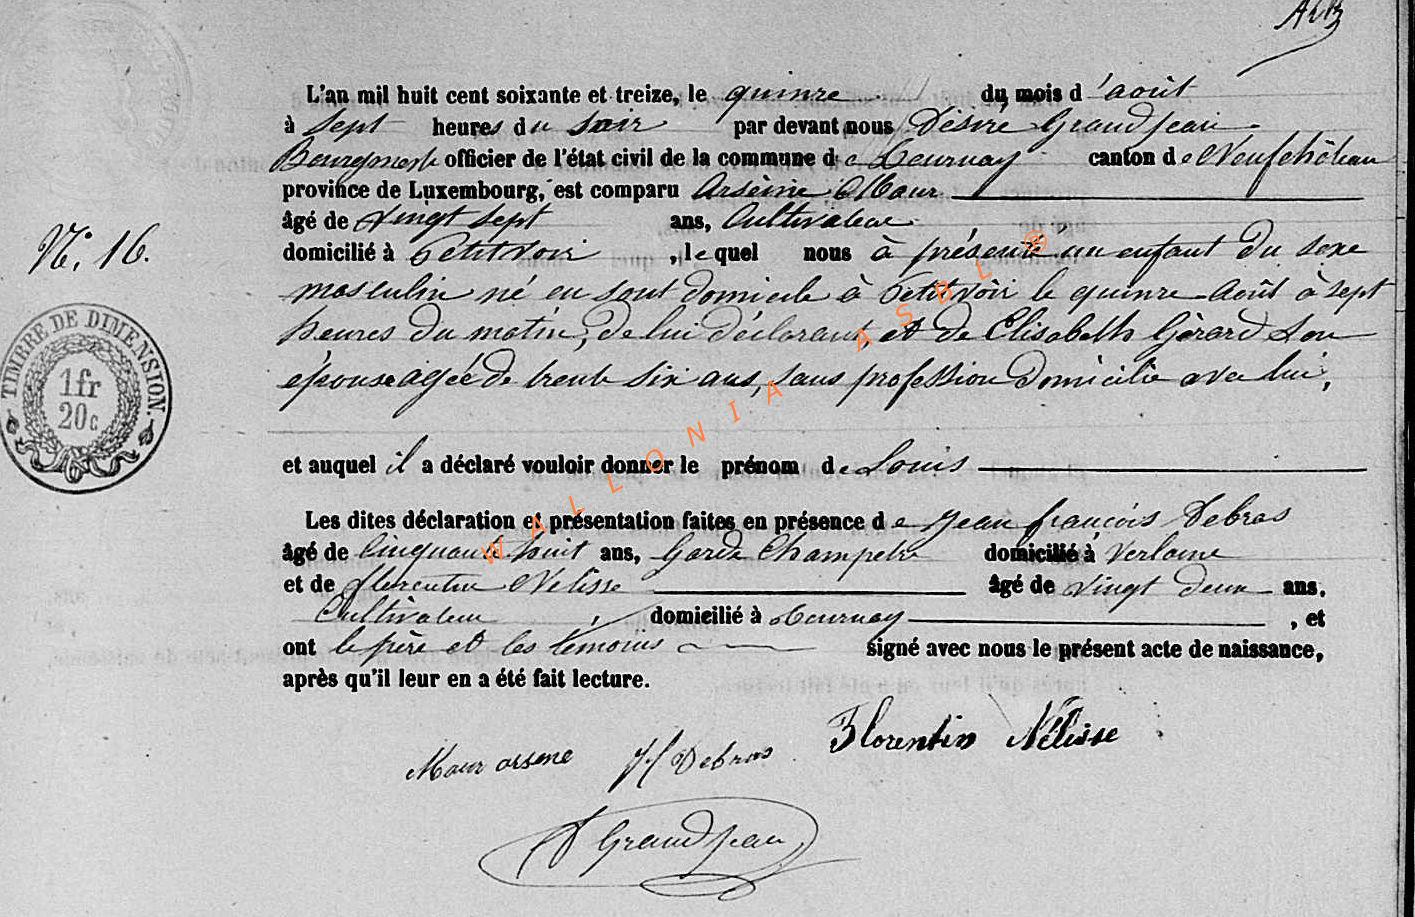 L'an mil huit cent soixante et treize, le quinze du mois d'août
à Sept heures du soir par devant nous Désiré Grandjean
Bourgmestre officier de l'état civil de la commune de Tournay canton de Neufchâteau
province de Luxembourg, est comparu Arsène Maur
âgé de vingt sept ans, Cultivateur
N°. 16.
domicilié à Petitvoir, lequel nous à présenté un enfant du sexe
masculin né en sont domicile à Petitvoir le quinze Août à sept
heures du matin, de lui déclarant, et de Elisabeth Gérard Son
épouse agée de trente six ans, sans profession domicilie avec lui,
TIMBRE DE DIMENSION.
1 fr
20 c
et auquel il a déclaré vouloir donner le prénom de Louis
Les dites déclaration et présentation faites en présence de Jean françois Debras
âgé de Cinquante huit ans, Garde Champetre domicilié à Verlaine
et de florentin Nélisse âgé de vingt deux ans,
Cultivateur, domicilié à Tournay, et
ont le père et les témoins signé avec nous le présent acte de naissance,
après qu'il leur en a été fait lecture.
Maur arsene Debras Florentin Nélisse
D Grandjean
WALLONIA ASBL ®